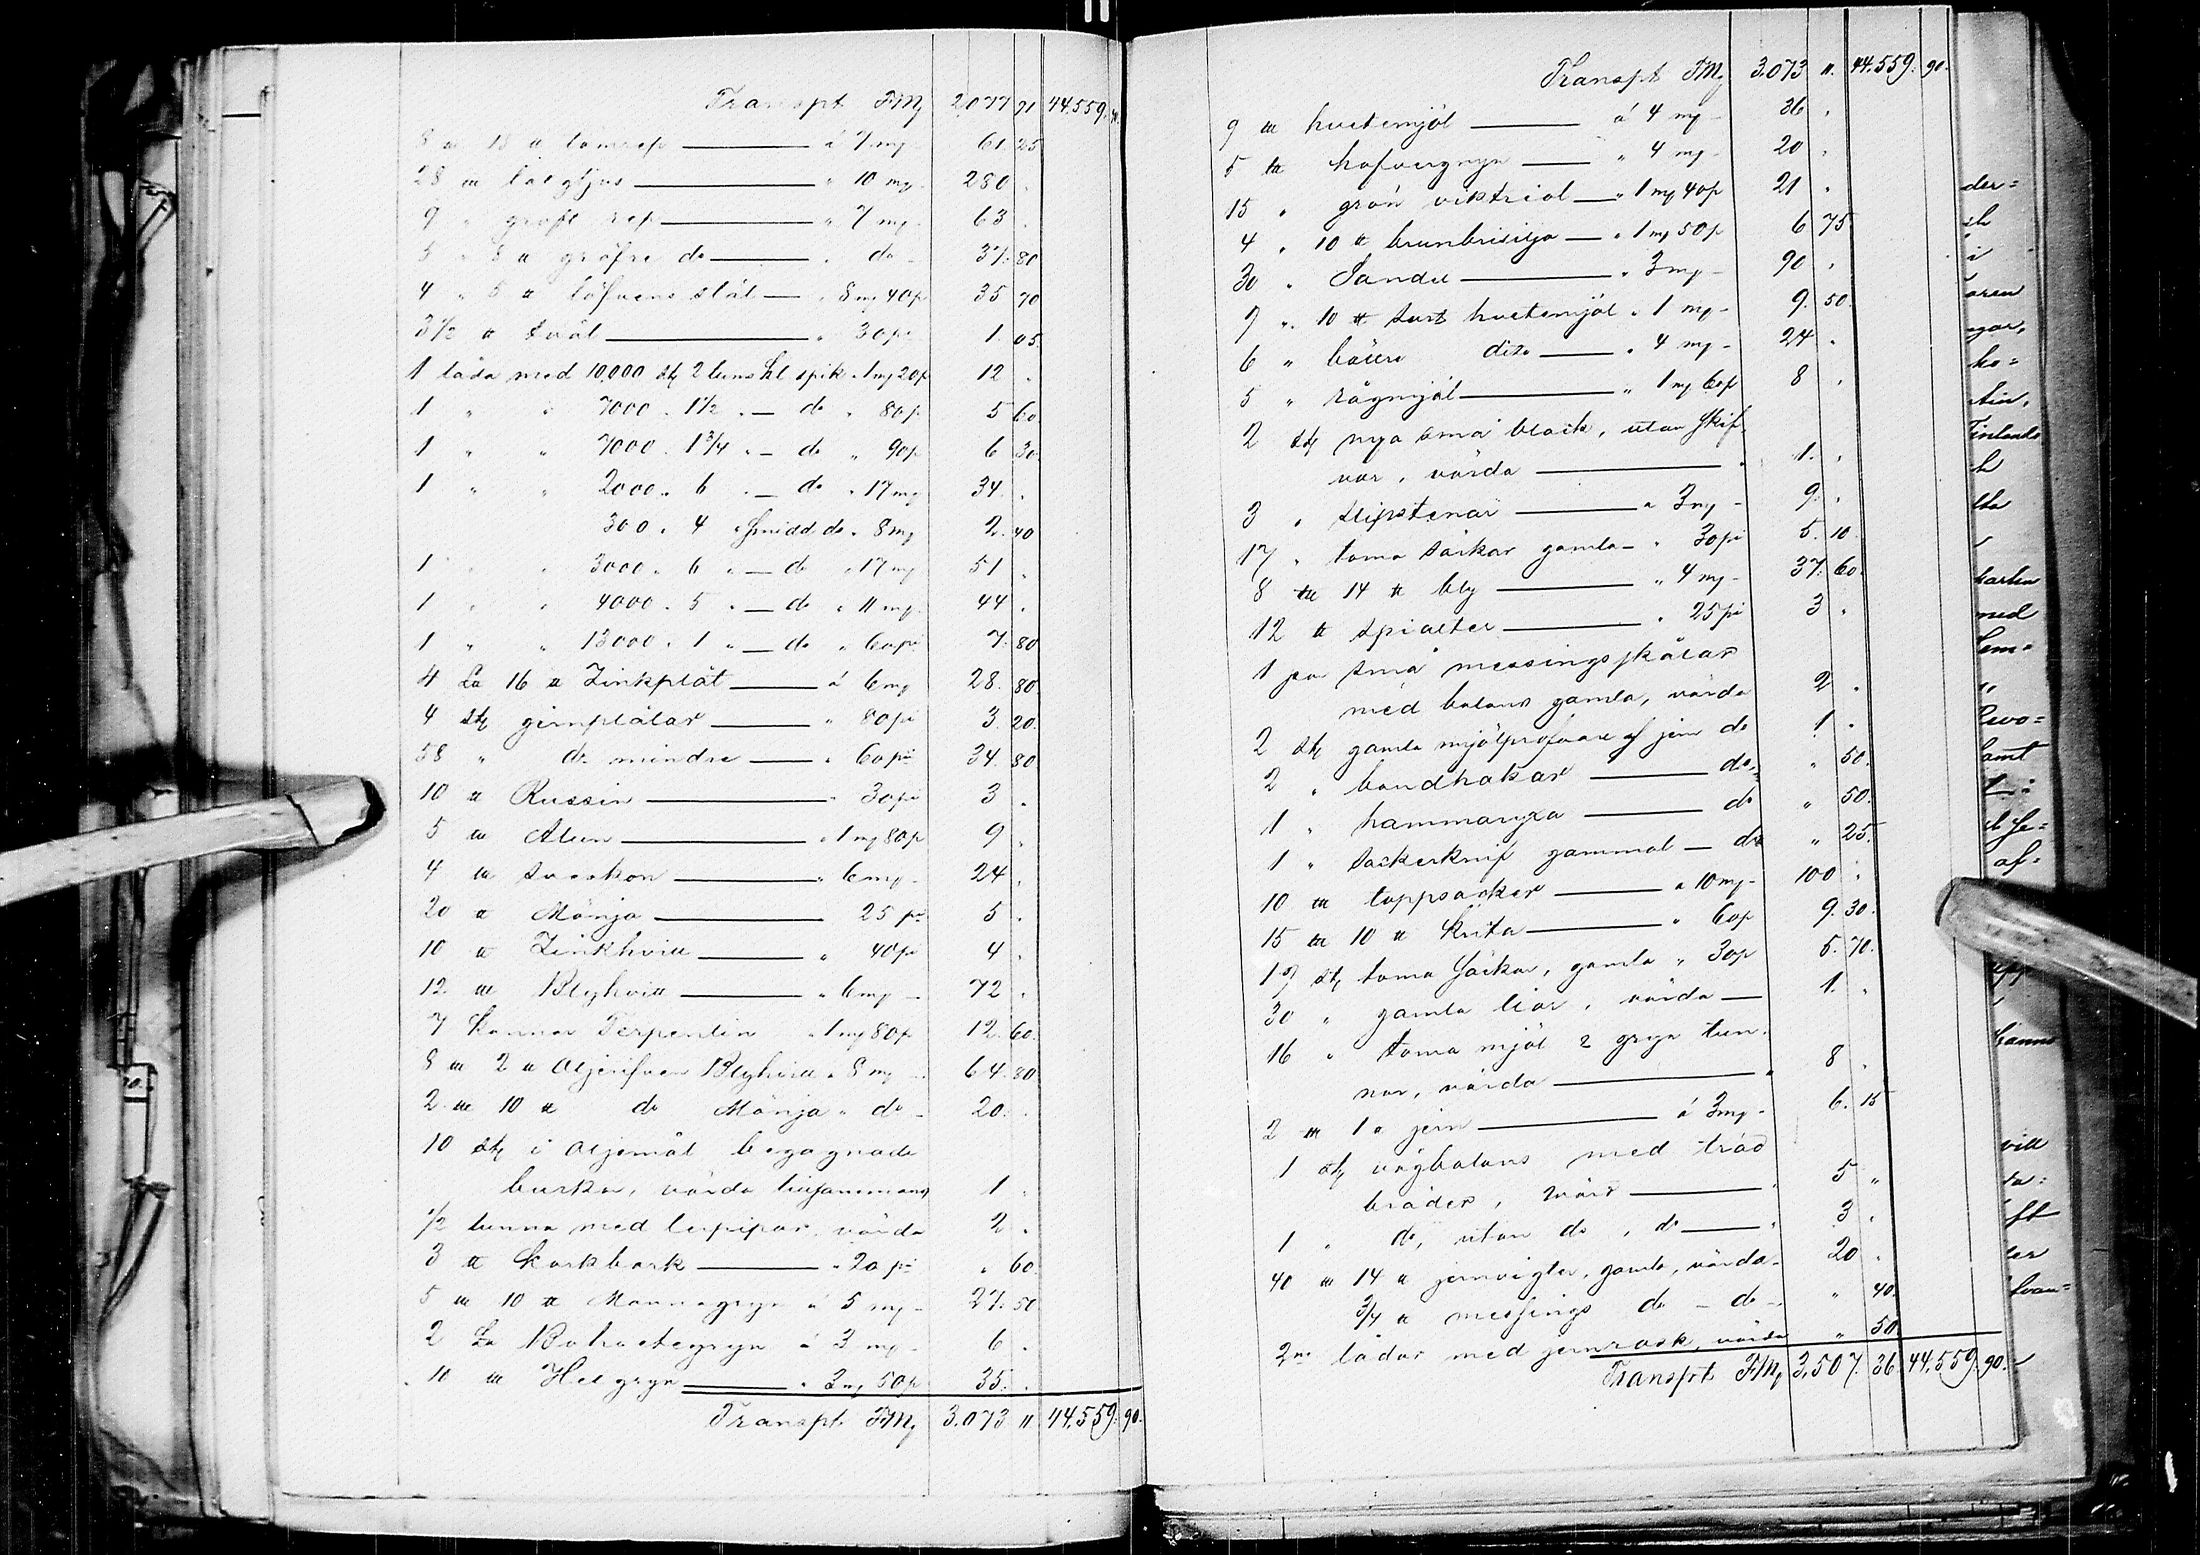 Transpt FMg 2,077 91 44,559. 90.
8 lll 15 ll tomrep — á 7 mg 61 25
28 lll talgljus — " 10 mg 280 "
9 " groft rep — " 7 mg 63 "
5 " 8 ll gröfre do — " do 37. 80
4 " 5 ll löfvens stål — " 8 mg 40p 35 70
3 1/2 ll tvål — " 30pi 1. 05.
1 låda med 10,000 stg 2 tums kl spik " 1mg 20p 12 "
1 " " 7000 " 1 1/2 " — do " 80p 5 60
1 " " 7000 " 1 3/4 " — do " 90p 6 30.
1 " " 2000 " 6 " — do " 17 mg 34. "
300 " 4 " smidd do " 8 mg 2. 40
1 " " 3000 " 6 " — do " 17 mg 51 "
1 " " 4000 " 5 " — do " 11 mg 44 "
1 " " 13000 " 1 " — do " 60pi 7. 80
4 Lll 16 ll Zinkplåt — á 6 mg 28. 80
4 stg jernplåtar — " 80pi 3. 20.
58 " do mindre — " 60pi 34. 80
10 ll Russin — " 30pi 3 "
5 lll Alun — " 1 mg 80p 9 "
4 lll sveskon — " 6 mg 24 "
20 ll Mönja — 25 pi 5 "
10 ll Zinkhvitt — " 40pi 4 "
12 lll Blyhvitt — " 6 mg 72 "
7 kannor Terpentin " 1 mg 80p 12. 60.
8 lll 2 ll Oljerifven Blyhvitt " 8 mg 64. 80
2 lll 10 ll do Mönja " do 20. "
10 stg i oljemål begagnade
burkar, värda tillsammans 1 "
1/2 tunna med lerpipor, värda 2 "
3 ll korkbark — " 20 pi " 60.
5 lll 10 ll Mannagryn á 5 mg 27. 50
2 Lll Bohvetegryn á 3 mg 6 "
10 lll Helgryn — " 3 mg 50p 35. "
Transpt FMg 3.073 11 44,559. 90.
Transpt FMg 3.073 11. 44.559. 90.
9 lll hvetemjöl — á 4 mg 36 "
5 lll hafvergryn — " 4 mg 20 "
15 " grön viktriol — " 1 mg 40p 21 "
4 " 10 ll brunbrisilja — " 1 mg 50p 6 75.
30 " Sandel — " 3 mg 90 "
9 " 10 ll surt hvetemjöl " 1 mg 9. 50.
6 " bättre dito — " 4 mg 24 "
5 " rågmjöl — " 1 mg 60p 8 "
2 stg nya små block, utan skif-
vor, värda — 1. "
3 " slipstenar — á 3 mg 9. "
17 " toma säckar gamla — " 30pi 5. 10.
8 lll 14 ll bly — " 4 mg 37. 60.
12 ll spialter — " 25pi 3 "
1 par små messingsskålar
med balans gamla, värda 2 "
2 stg gamla mjölprofvare af jern do 1 "
2 " bandhakar — do " 50.
1 " hammaryxa — do " 50.
1 " sockerknif gammal — do " 25.
10 lll toppsocker — á 10 mg 100 "
15 lll 10 ll krita — " 60p 9. 30.
19 stg toma säckar, gamla " 30p 5. 70.
30 " gamla liar, värda — 1. "
16 " toma mjöl & gryn tun-
nor, värda — 8 "
2 lll 1 ll jern — á 3 mg 6. 15
1 stg vågbalans med träd
bräder, värd — 5 "
1 " do, utan do, do — 3 "
40 lll 14 ll jernvigter, gamla, värda 20 "
3/4 ll messings do — do " 40.
2ne lådor med jernrask, värda " 50
Transprt FMg 3,507. 36 44,559. 90.
ko=
Finlands
med
samt
af=